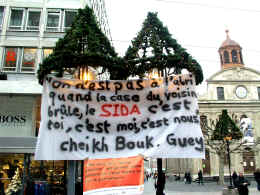 "On n'est pas à l'abri
quand la case du voisin
brûle, le SIDA c'est
toi, c'est moi, c'est nous.
cheikh Bouk. Gueye
BOSS